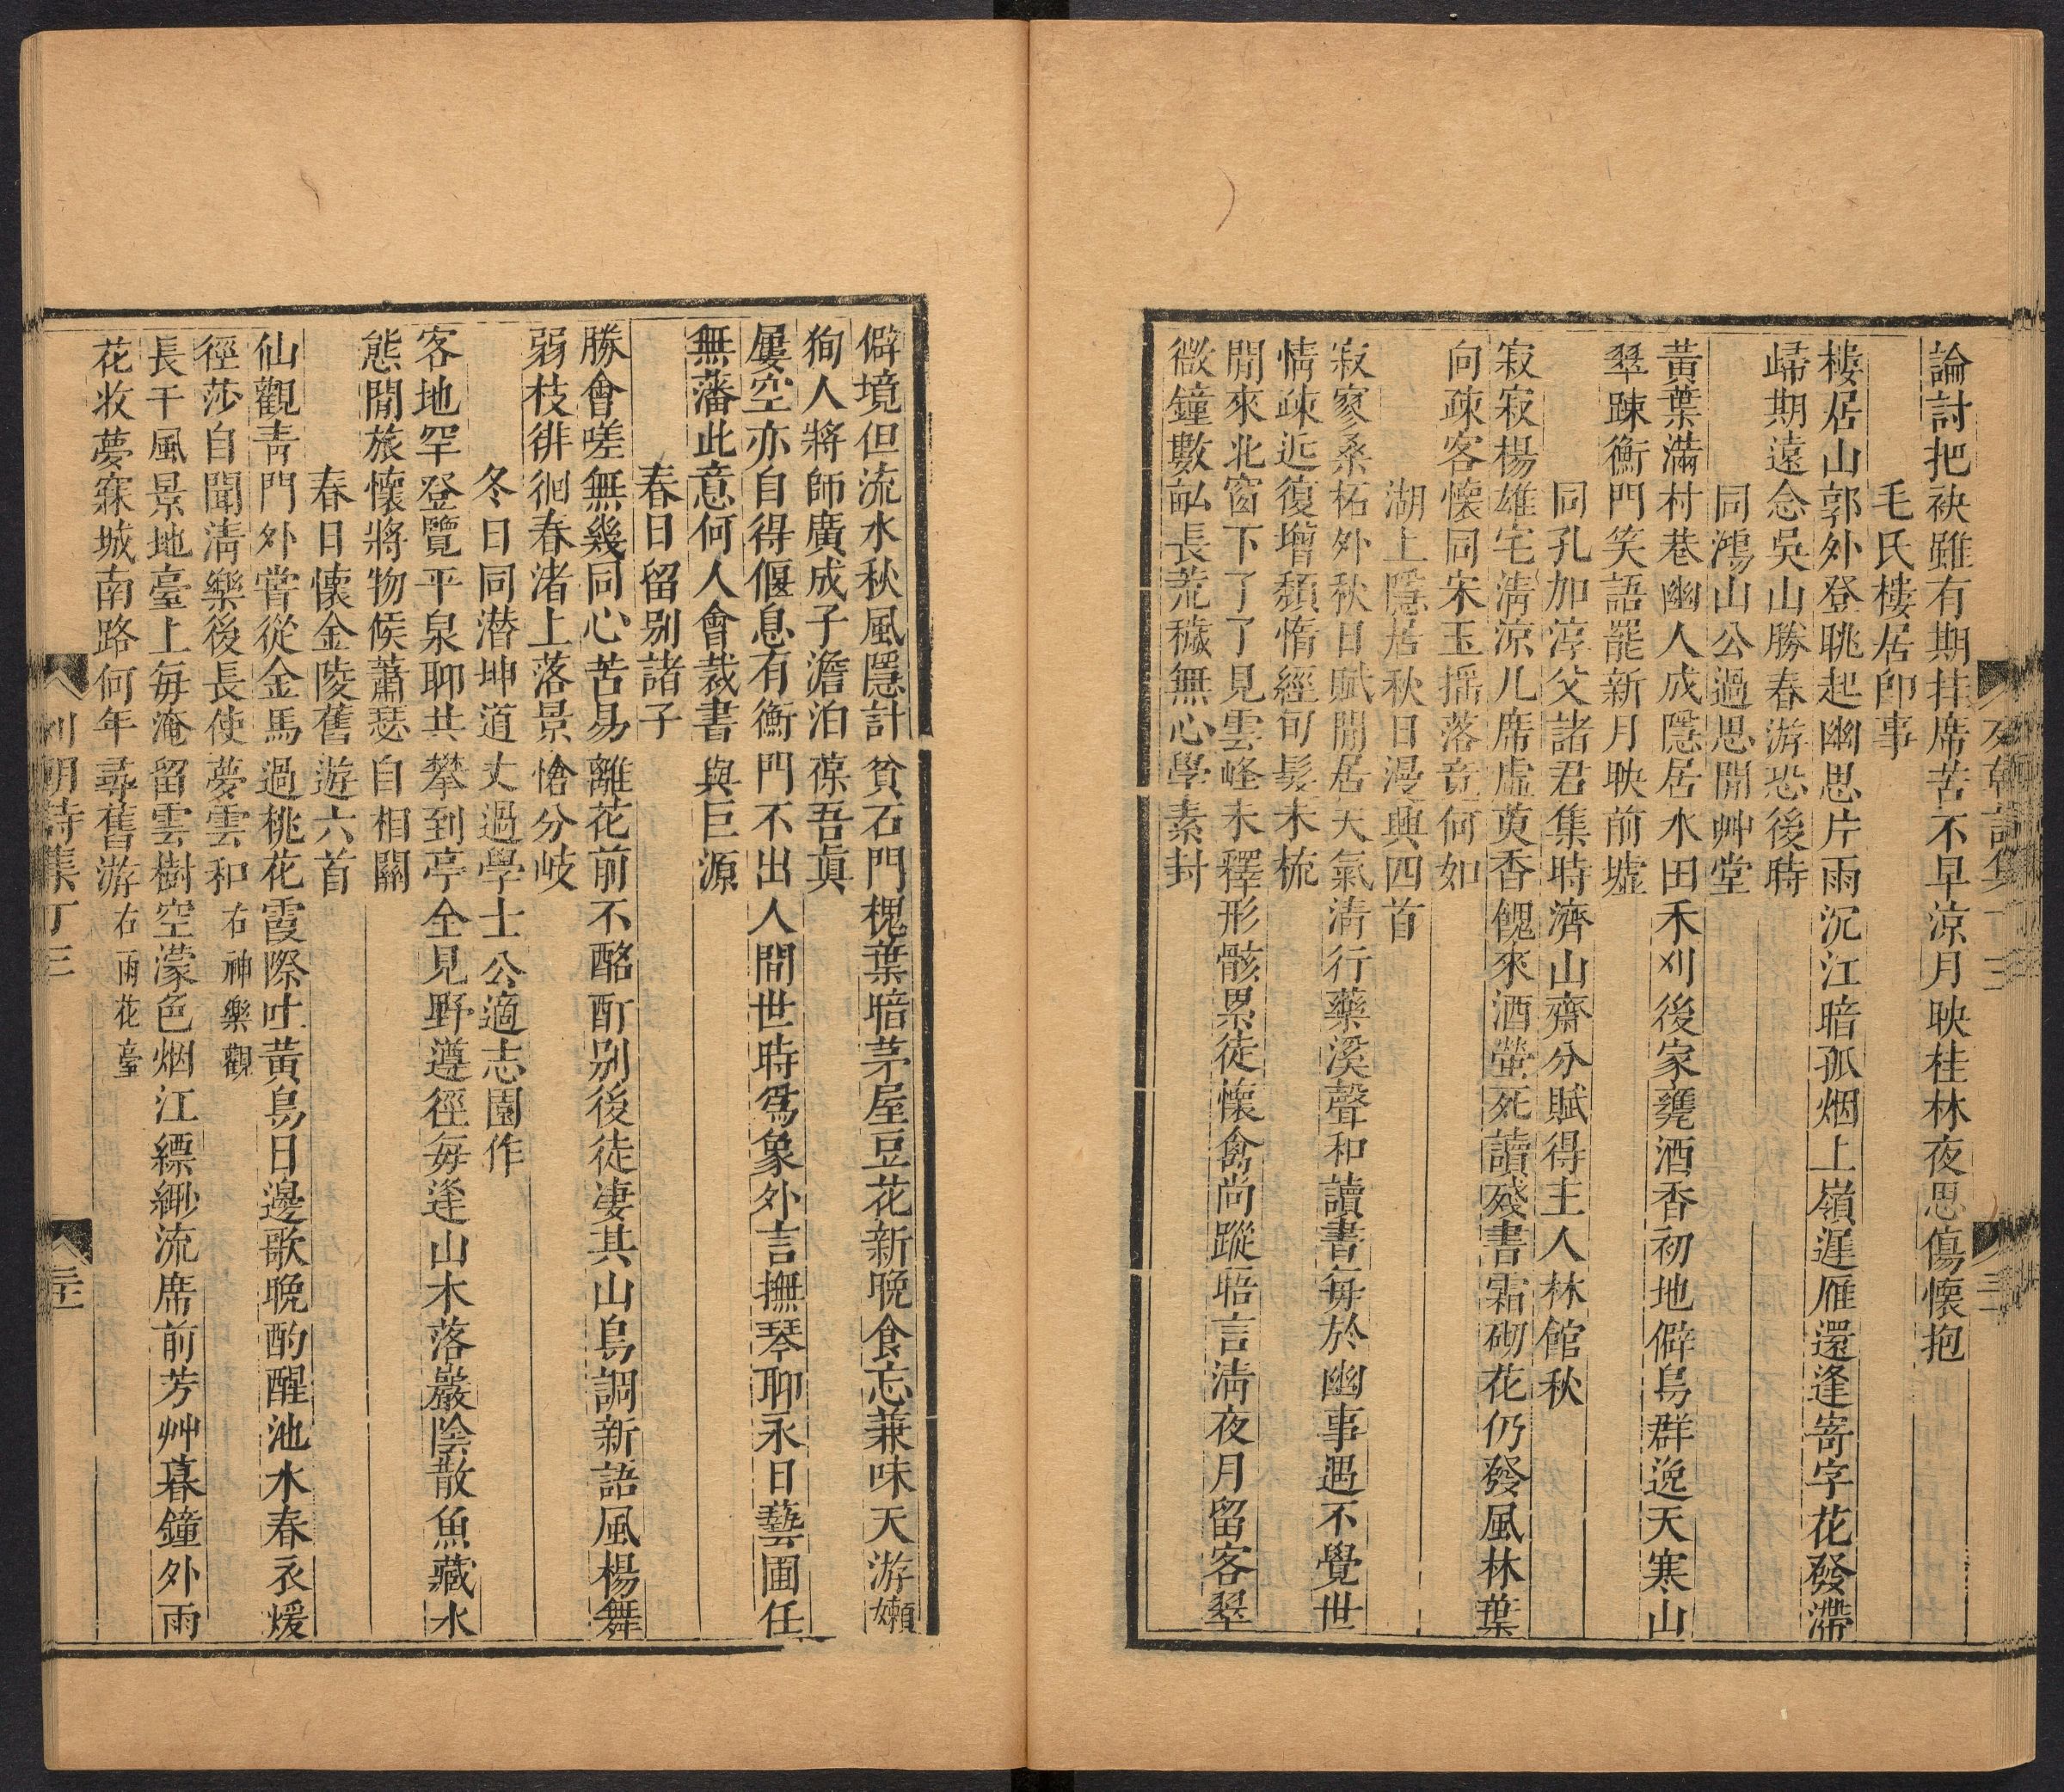 論討把袂雖有期挂席苦不早涼月映桂林夜思傷懷抱
毛氏樓居卽事
樓居山郭外登眺起幽思片雨沉江暗孤烟上嶺遲雁還逢寄字花發滯
歸期遠念吳山勝春游恐後時
同鴻山公過思閒艸堂
黃葉滿村巷幽人成隱居水田禾刈後家甕酒香初地僻鳥群逸天寒山
翠踈衡門笑語罷新月映前墟
同孔加淳父諸君集時濟山齋分賦得主人林館秋
寂寂楊雄宅淸涼几席虛萸香餽來酒螢死讀殘書霜砌花仍發風林葉
向疎客懷同宋玉揺落竟何如
湖上隱居秋日漫興四首
寂寥桑柘外秋日賦閒居天氣淸行藥溪聲和讀書每於幽事遇不覺世
情疎近復增頹惰經旬髮未梳
閒來北窗下了了見雲峰未釋形骸累徒懷禽尚蹤晤言淸夜月留客翠
微鐘數畝長荒穢無心學素封
僻境但流水秋風隱計貧石門槐葉暗茅屋豆花新晚食忘兼味天游嬾
狥人將師廣成子澹泊葆吾眞
屢空亦自得偃息有衡門不出人間世時爲象外言撫琴聊永日藝圃任
無藩此意何人會裁書與巨源
春日留别諸子
勝會嗟無幾同心苦易離花前不酩酊别後徒凄其山鳥調新語風楊舞
弱枝徘徊春渚上落景愴分岐
冬日同潜坤道丈過學士公適志園作
客地罕登覽平泉聊共攀到亭全見野遵徑每逢山木落巖陰散魚藏水
態閒旅懷將物候蕭瑟自相關
春日懷金陵舊遊六首
仙觀靑門外嘗從金馬過桃花霞際吐黃鳥日邊歌晚酌醒池水春衣煖
徑莎自聞淸樂後長使夢雲和右神樂觀
長干風景地臺上每淹留雲樹空濛色烟江縹緲流席前芳艸暮鐘外雨
花收夢寐城南路何年尋舊游右雨花臺
列朝詩集丁三